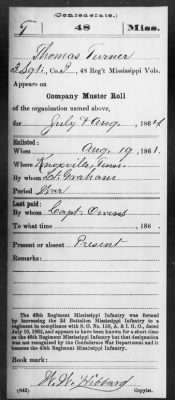 (Confederate.)
T 48 Miss.
Thomas Turner
3 Sgt, Co. I, 48 Reg't Mississippi Vols.
Appears on
Company Muster Roll
of the organization named above,
for July & Aug, 1864
Enlisted:
When Aug 19, 1861.
Where Knoxville, Tenn.
By whom Lt. Graham
Period War
Last paid:
By whom Capt. Owens
To what time , 186 .
Present or absent Present
Remarks:
The 48th Regiment Mississippi Infantry was formed
by increasing the 2d Battalion Mississippi Infantry to a
regiment in compliance with S. O. No. 159, A. & I. G. O., dated
as the 45th Regiment Mississippi Infantry but that designation
was not recognized by the Confederate War Department and it
became the 48th Regiment Mississippi Infantry.
Book mark:
(642) Copyist.